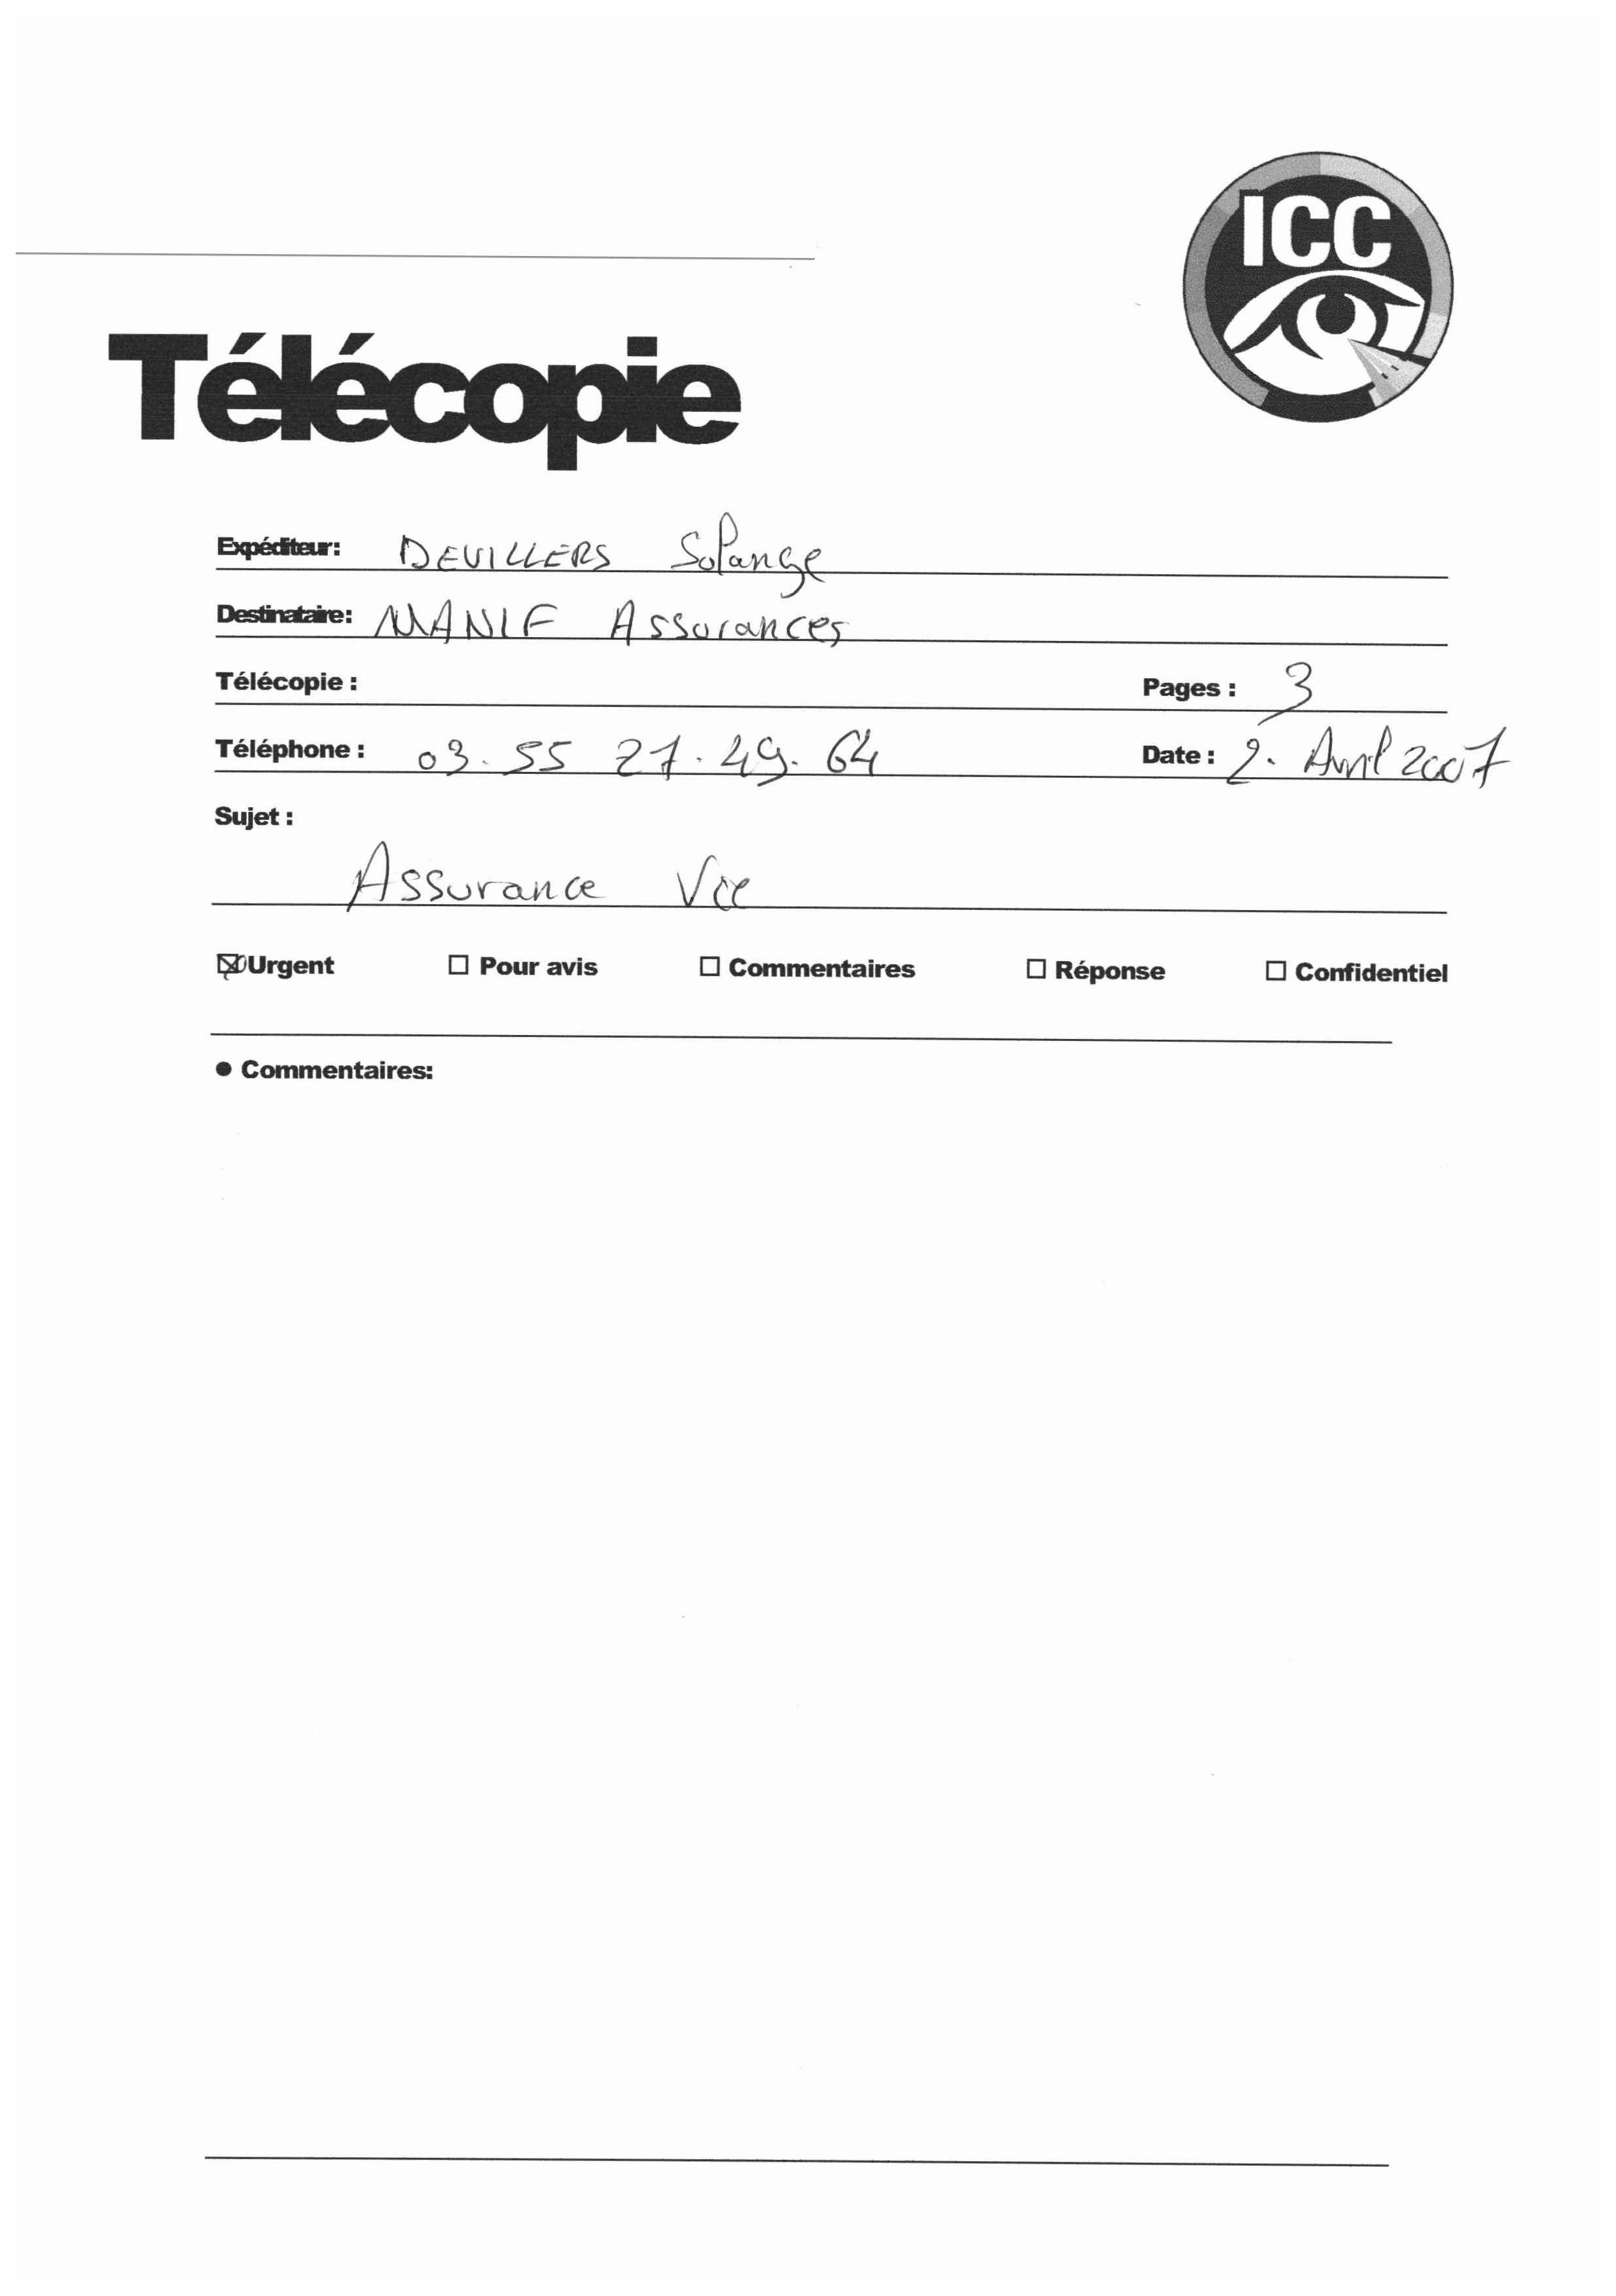 ICC
Télécopie
Expéditeur: DEVILLERS Solange
Destinataire: MANIF Assurances
Télécopie : Pages : 3
Téléphone : 03. 55 27. 49. 64 Date : 2. Avril 2007
Sujet :
Assurance Vie
☒ Urgent ☐ Pour avis ☐ Commentaires ☐ Réponse ☐ Confidentiel
● Commentaires: